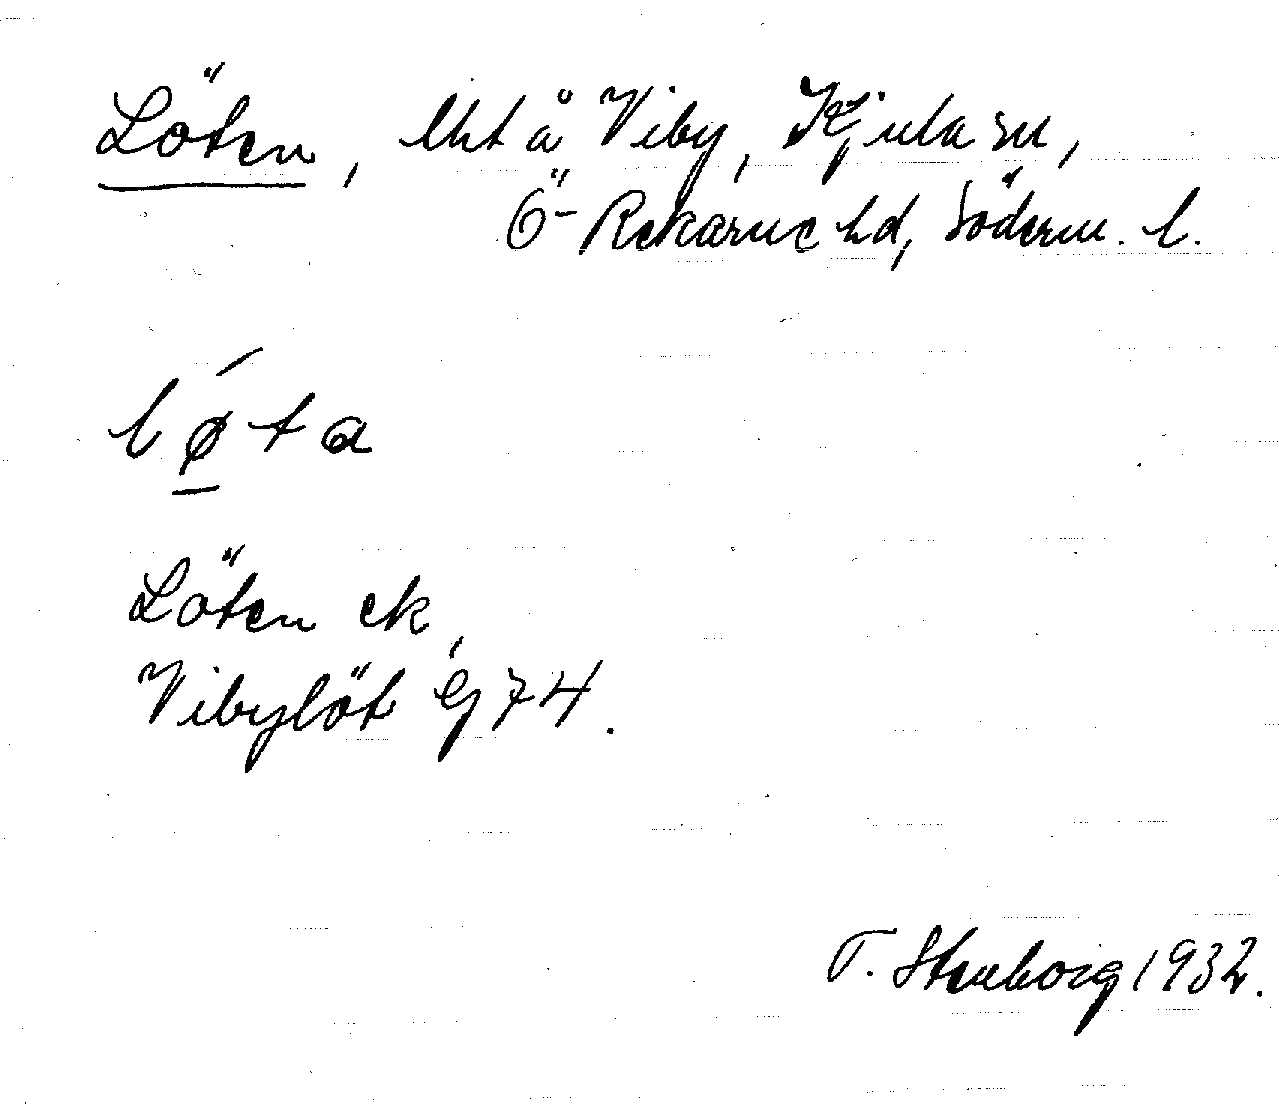 Löten, lht å Viby, Kjula sn,
Ö-Rekarne hd, Söderm. l.
lǿ̱ta
Löten ek,
Vibylöt G74.
T. Stenborg 1932.